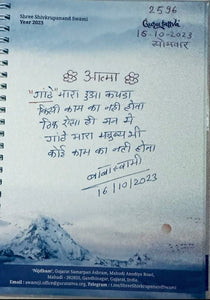 Shree Shivkrupanand Swami
Year 2023
2596
Gurutattva
16-10-2023
सोमवार
आत्मा
"गांठे" मारा हुआ कपडा
किसी काम का नही होता
ठिक ऐसा ही मन मे
गांठे मारा मनुष्य भी
कोई काम का नही होता
बाबास्वामी
16/10/2023
"Nijdham", Gujarat Samarpan Ashram, Mahudi Anodiya Road,
Mahudi - 382855, Gandhinagar, Gujarat, India.